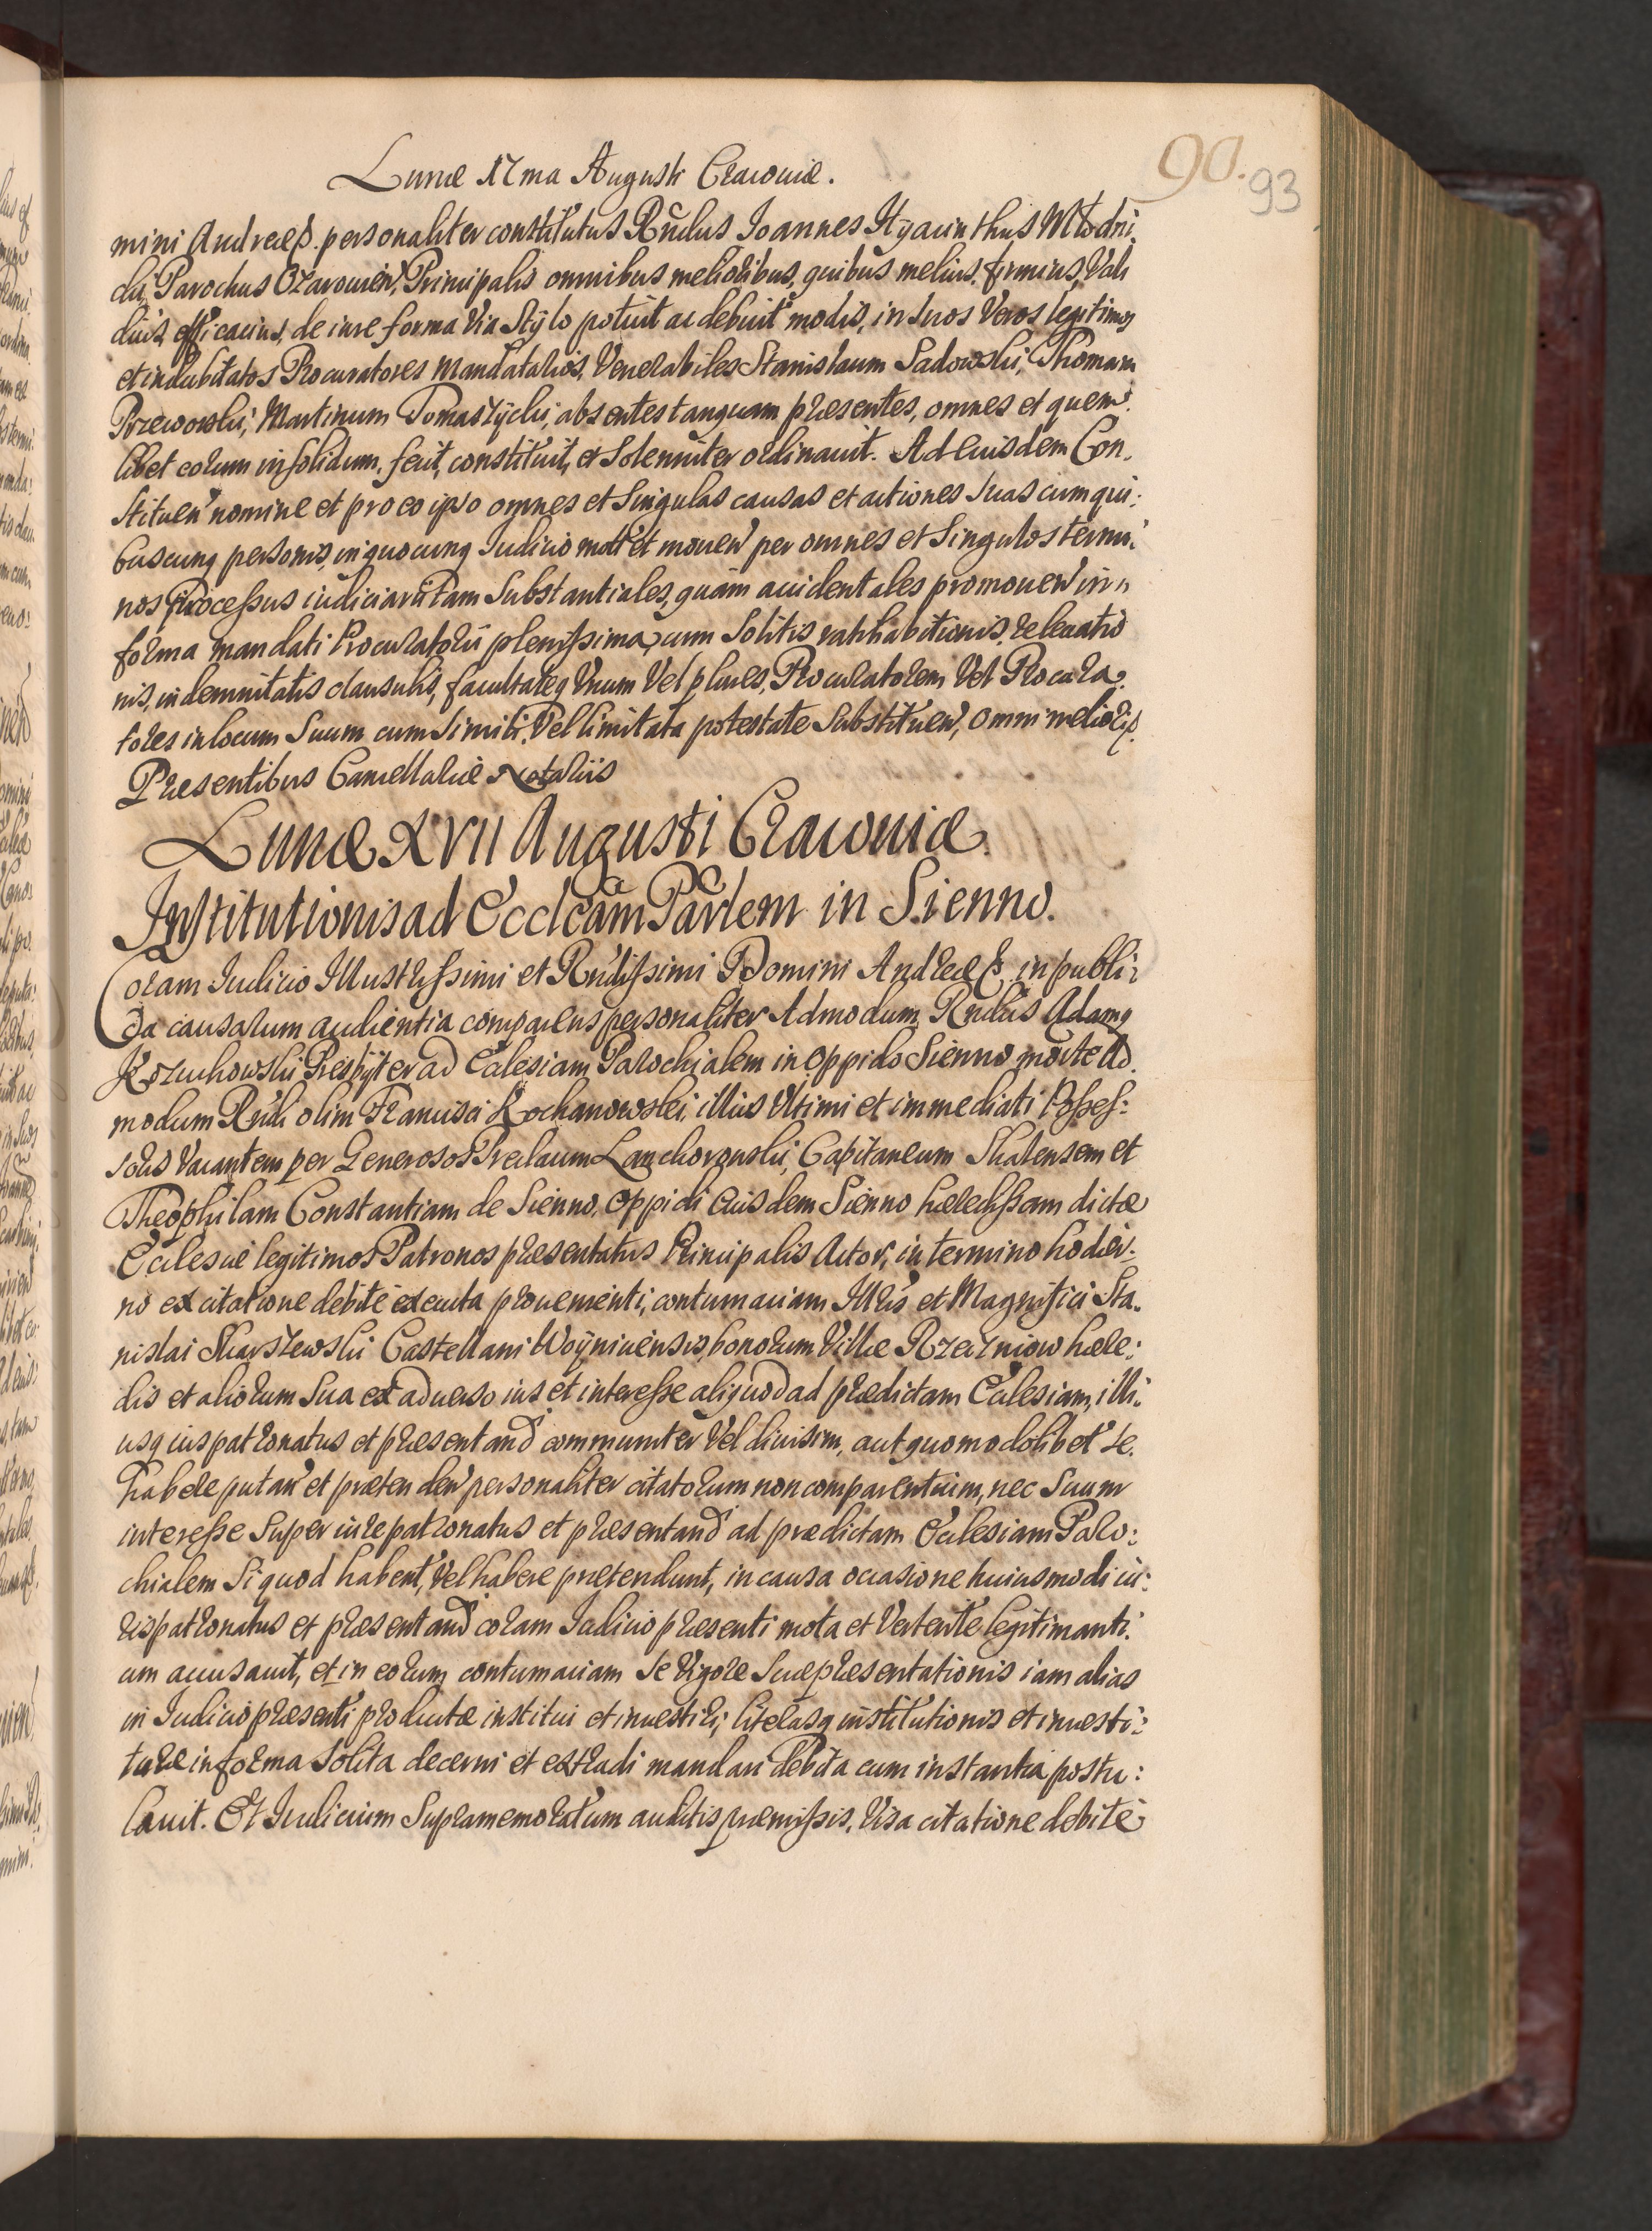 Lunæ 17ma Augusti Cracouiæ.
90. 93
mini Andreæ &. personaliter constitutus Rndus Joannes Hyacinthus Młodni
cki Parochus Ozarouien, Principalis omnibus melioribus, quibus melius, firmius, Vali
dius, efficacius, de iure forma Via Stylo potuit ac debuit modis, in suos Veros legitimos
et indubitatos Procuratores Mandatarios, Venerabiles Stanislaum Sadowski, Thomam
Przeworski, Martinum Tomaszycki, absentes tanquam præsentes, omnes et quem:
libet eorum in solidum, fecit, constituit, et Solenniter ordinauit. Ad Eiusdem Con:
stituen nomine et pro eo ipso omnes et Singulas causas et actiones Suas cum qui:
buscunq personis, in quocunq Judicio mott et mouen per omnes et Singulos termi:
nos Processus iudiciarii tam Substantiales, quàm accidentales promouen in
forma mandati Procuratorii plenissima, cum Solitis ratihabitionis, releuatio
nis, indemnitatis clausulis, facultateq Vnum Vel plures, Procuratorem Vel Procura:
tores in locum Suum cum Simili, Vel limitata potestate Substituen, Omni meliori &.
Præsentibus Cancellariæ Notariis
Lunæ XVII Augusti Cracouiæ.
Institutionis ad Ecclcam Parlem in Sienno.
Coram Judicio Illustrissimi et Rndissimi Domini Andreæ &. in publi:
ca causarum audientia comparens personaliter Admodum Rndus Adamq
Kozuchowski Presbyter ad Ecclesiam Parochialem in Oppido Sienno morte Ad
modum Rndi olim Francisci Kochanowski, illius Vltimi et immediati Posses:
soris Vacantem per Generosos Preclaum Lanckoronski, Capitaneum Skalensem et
Theophilam Constantiam de Sienno, Oppidi Eiusdem Sienno hæredissam dictæ
Ecclesiæ legitimos Patronos præsentatus Principalis Actor, in termino hodier:
no ex citatione debitè executa proueniente, contumaciam Illris et Magnifici Sta:
nislai Skarszewski Castellani Woyniciensis, bonorum Villæ Rzeczniow hære:
dis et aliorum Sua ex aduerso ius et interesse aliquod ad prædictam Ecclesiam, illi:
usq iuspatronatus et præsentand communiter Vel diuisim, aut quomodolibet Se
habere putan et prætenden personaliter citatorum non comparentium, nec Suum
interesse Super iure patronatus et præsentand ad prædictam Ecclesiam Paro:
chialem Si quod habent, Vel habere prætendunt, in causa occasione huiusmodi iu:
rispatronatus et præsentand coram Judicio præsenti mota et Vertente legitimanti:
um accusauit, et in eorum contumaciam Se Vigore Suæ præsentationis iam alias
in Judicio præsenti productæ institui et inuestiri, literasq institutionis et inuesti:
turæ in forma Solita decerni et extradi mandari debita cum instantia postu:
lauit. Et Judicium Supramemoratum auditis præmissis, Visa citatione debitè